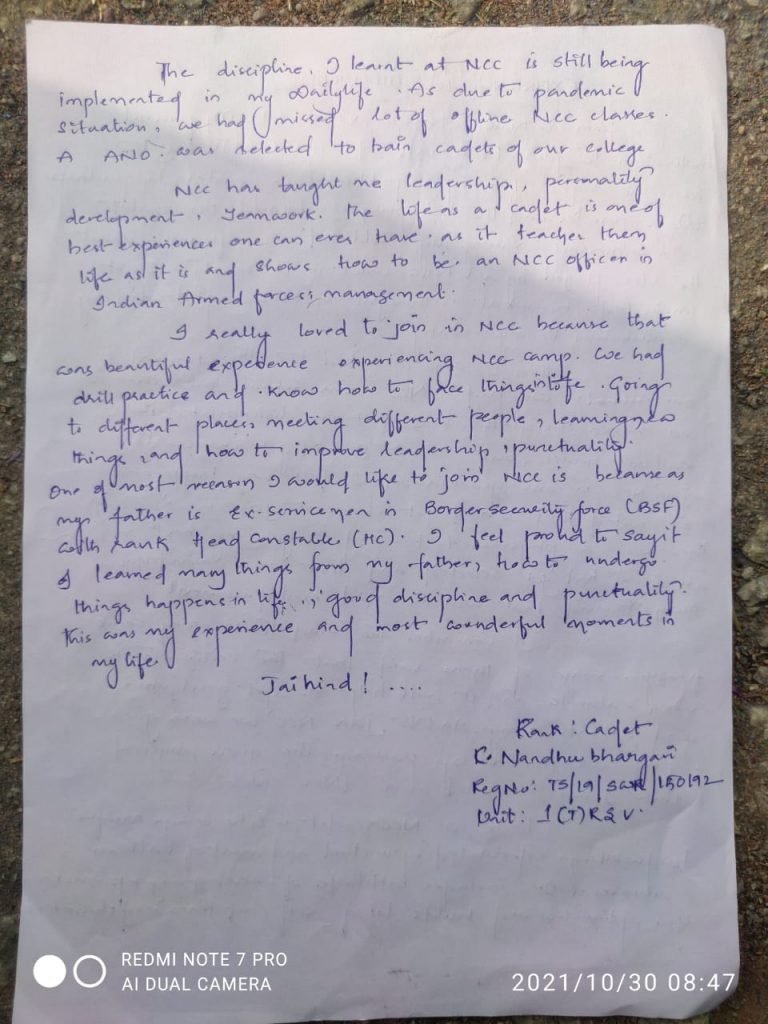 The discipline, I learnt at NCC is still being
implemented in my Dailylife. As due to pandemic
situation, we had missed lot of offline NCC classes.
A ANO was selected to train cadets of our college
NCC has taught me leadership, personality
development, Teamwork. The life as a cadet is one of
best experiences one can ever have. as it teaches them
life as it is and shows how to be an NCC officer in
Indian Armed forces, management.
I really loved to join in NCC because that
was beautiful experience experiencing NCC camp. We had
drill practice and know how to face things in life. Going
to different places, meeting different people, learning new
things, and how to improve leadership, punctuality.
One of most reason I would like to join NCC is because as
my father is Ex-servicemen in Border security force (BSF)
with rank Head Constable (HC). I feel proud to say it
I learned many things from my father, how to undergo
things happens in life.., good discipline and punctuality.
This was my experience and most wounderful moments in
my life
Jaihind! ....
Rank : Cadet
K. Nandhu bhargavi
Reg No: TS/19/ /150192
Unit : 1 (T) R & V.
REDMI NOTE 7 PRO
AI DUAL CAMERA
2021/10/30 08:47